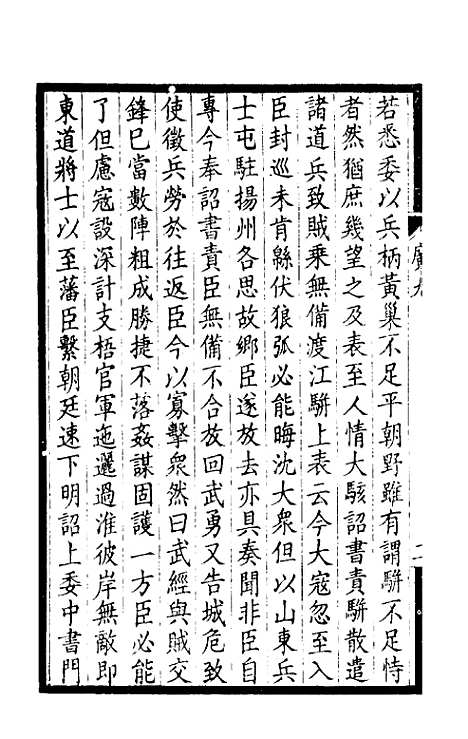 若悉委以兵柄黃巢不足平朝野雖有謂駢不足恃
者然猶庶幾望之及表至人情大駭詔書責駢散遣
諸道兵致賊乘無備渡江駢上表云今大寇忽至入
臣封巡未肯綿伏狼弧必能晦沈大衆但以山東兵
士屯駐揚州各思故鄉臣遂放去亦具奏聞非臣自
專今奉詔書責臣無備不合放回武勇又告城危致
使徵兵勞於往返臣今以寡擊衆然曰武經與賊交
鋒已當數陣粗成勝捷不落姦謀固護一方臣必能
了但慮寇設深計支梧官軍迤邐過淮彼岸無敵即
東道將士以至藩臣繫朝廷速下明詔上委中書門